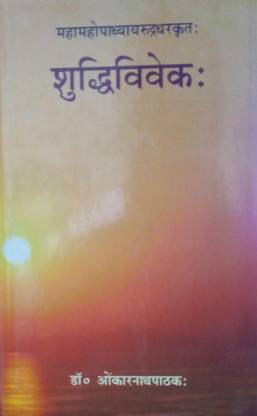 महामहोपाध्यायरुद्रधरकृतः
शुद्धिविवेकः
डॉ० ओंकारनाथपाठकः